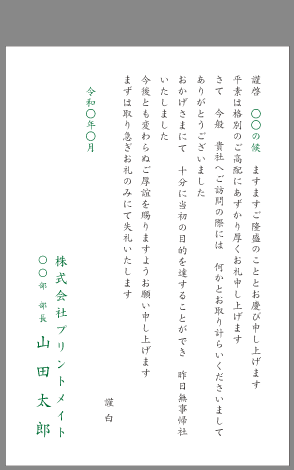 謹啓　〇〇の候　ますますご隆盛のこととお慶び申し上げます
平素は格別のご高配にあずかり厚くお礼申し上げます
さて　今般　貴社へご訪問の際には　何かとお取り計らいくださいまして
ありがとうございました
おかげさまにて　十分に当初の目的を達することができ　昨日無事帰社
いたしました
今後とも変わらぬご厚誼を賜りますようお願い申し上げます
まずは取り急ぎお礼のみにて失礼いたします
謹白
令和〇年〇月
株式会社プリントメイト
〇〇部　部長　山田太郎